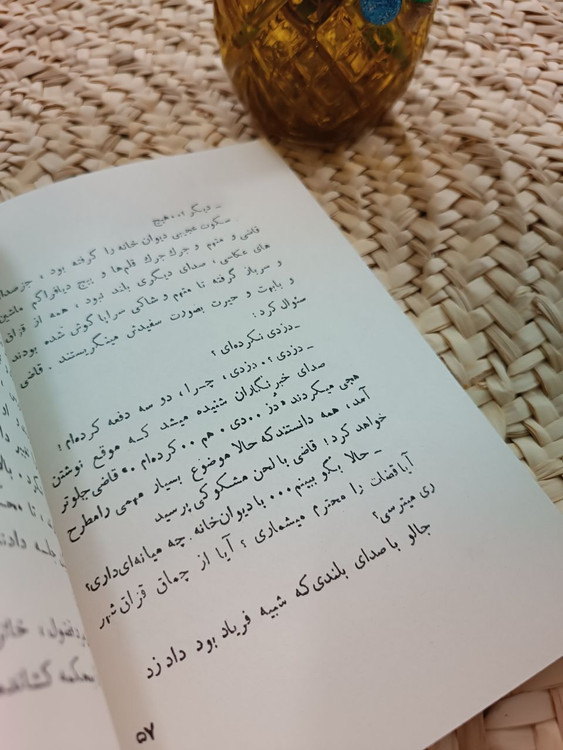 ـ دیگر ؟..هیچ
سکوت عجیبی دیوان خانه را گرفته بود ، جز صدای
قاضی و متهم و جرك جرك قلم‌ها و پیچ دیافراگم ماشین
های عکاسی ، صدای دیگری بلند نبود ، همه از قزاق
و سرباز گرفته تا متهم و شاکی سراپا گوش شده بودند
و بابهت و حیرت بصورت سفیدش مینگریستند . قاضی
سئوال کرد :
ـ دزدی نکرده‌ای ؟
ـ دزدی ؟. دزدی ، چـرا ، دو سه دفعه کرده‌ام ؛
صدای خبرنگاران شنیده میشد کـه موقع نوشتن
هجی میکردند «دز ..دی . هم .. کرده‌ام .» قاضی جلوتر
آمد ، همه دانستند که حالا موضوع بسیار مهمی را مطرح
خواهد کرد ؛ قاضی با لحن مشکوکی پرسید
ـ حالا بگو ببینم... با دیوان‌خانه چه میانه‌ای داری؟
آیا قضات را محترم میشماری ؟ آیا از چماق قزاق شهر
ری میترسی؟
جالو با صدای بلندی که شبیه فریاد بود داد زد
۵۷